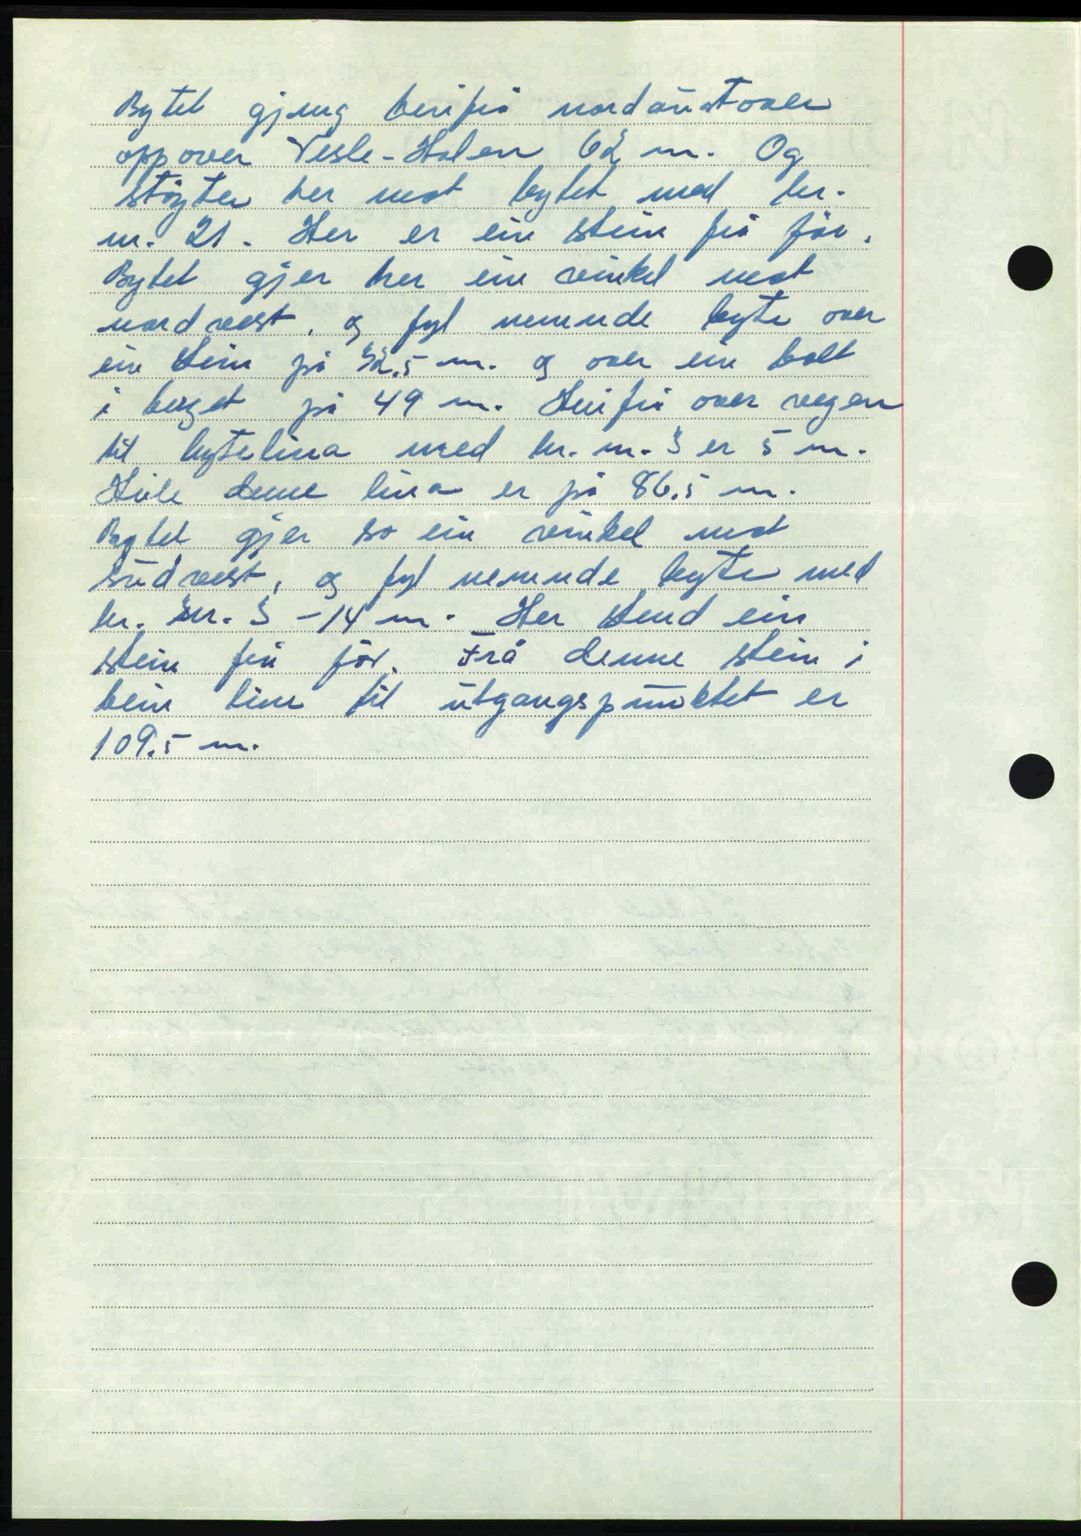 Bytet gjeng herifrå nordaustover
oppover Vesle-Holen 62 m. Og
støyter her mot bytet med br.
nr. 21. Her er ein stein frå før.
Bytet gjer her ein vinkel mot
nordvest, og fyl nemnde byte over
ein stein på 32,5 m. og over ein bolt
i berget på 49 m. Herifrå over vegen
til bytelina med br. nr. 3 er 5 m.
Heile denne lina er på 86,5 m.
Bytet gjer so ein vinkel mot
sudvest, og fyl nemnde byte med
br. nr. 3 - 14 m. Her stend ein
stein frå før. Frå denne stein i
bein line til utgangspunktet er
109,5 m.